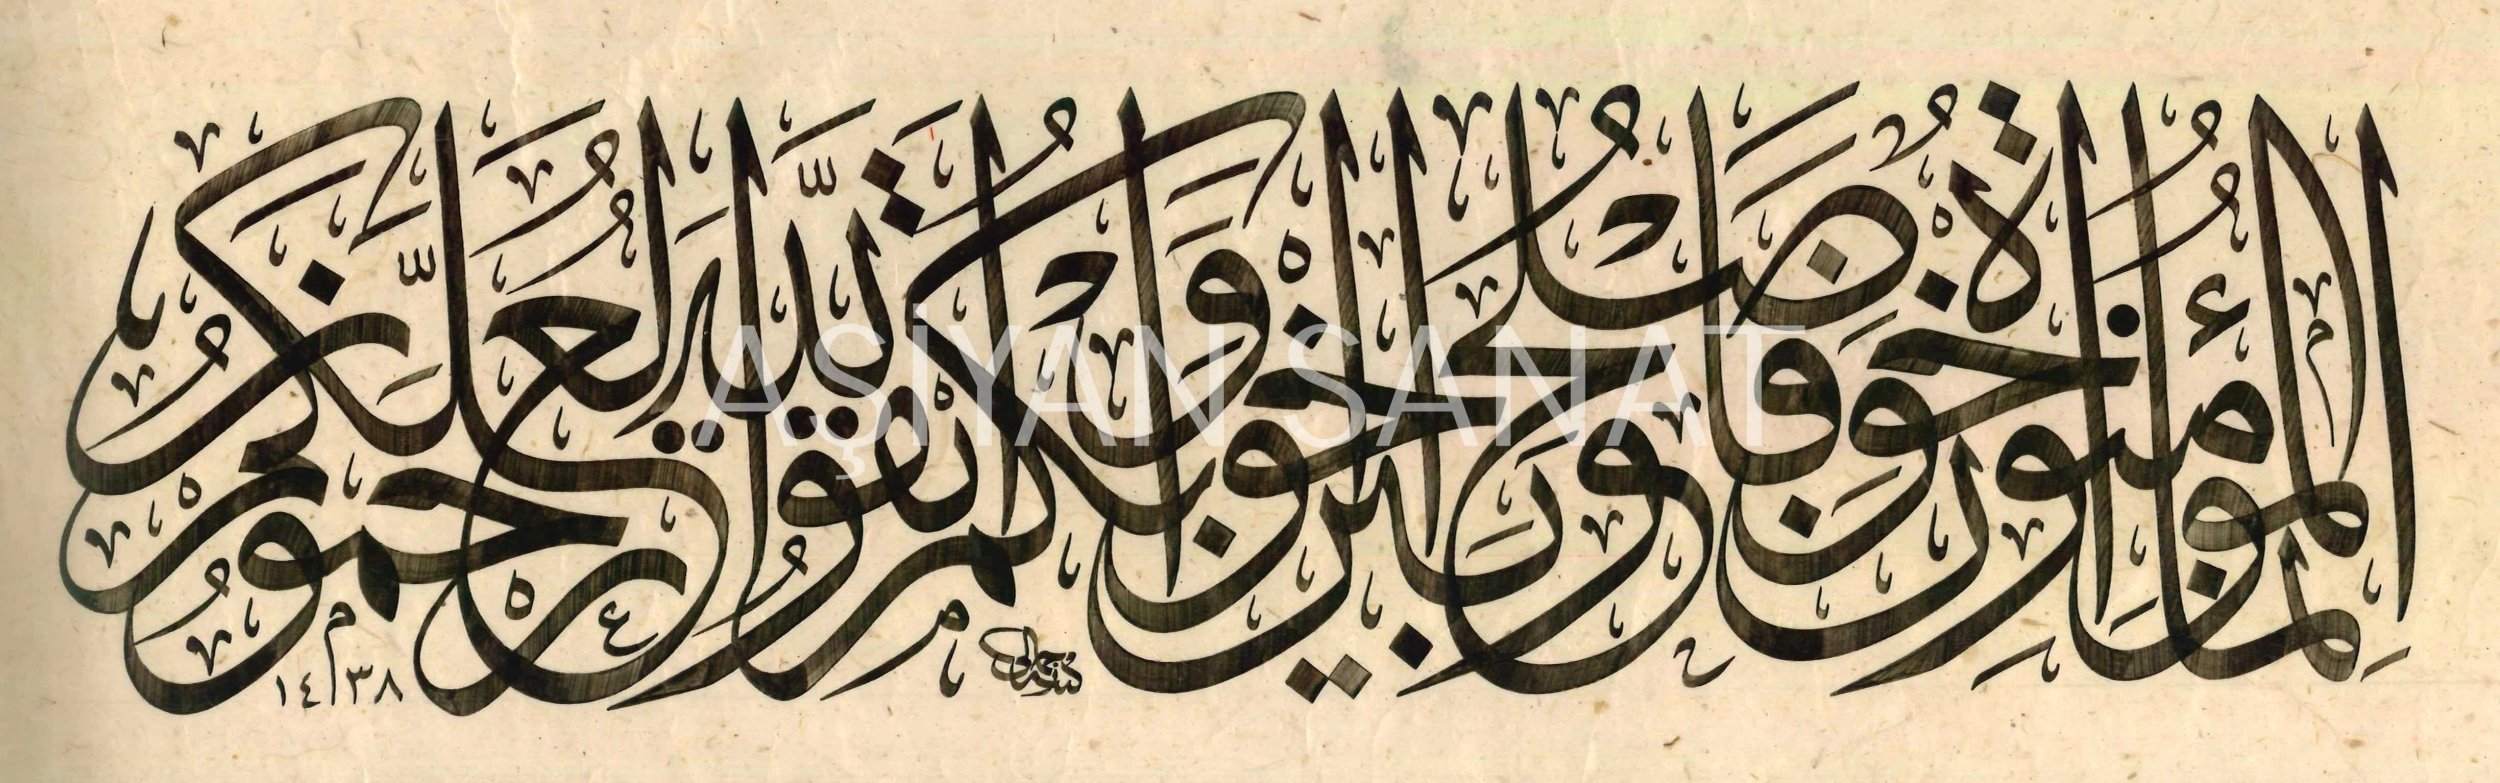 إِنَّمَا الْمُؤْمِنُونَ إِخْوَةٌ فَأَصْلِحُوا بَيْنَ أَخَوَيْكُمْ وَاتَّقُوا اللَّهَ لَعَلَّكُمْ تُرْحَمُونَ
١٤٣٨
AŞİYAN SANAT